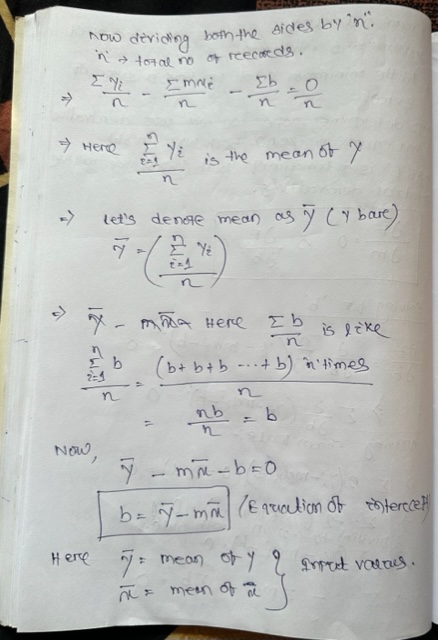 Now deviding both the sides by "n".
'n' → total no of records.
⇒ Σyᵢ/n - Σmxᵢ/n - Σb/n = 0/n
⇒ Here Σⁿᵢ₌₁ yᵢ / n is the mean of y
⇒ let's denote mean as ȳ (y bare)
ȳ = (Σⁿᵢ₌₁ yᵢ / n)
⇒ Here Σb/n is like
Σⁿᵢ₌₁ b / n = (b+b+b ...+b) n'times / n
= nb/n = b
Now,
ȳ - mx̄ - b = 0
b = ȳ - mx̄ (Equation of intercept)
Here ȳ = mean of y } Input values.
x̄ = mean of x